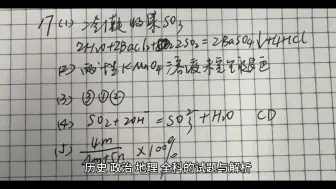 17(1) 冷凝收集SO₃
2H₂O+2BaCl₂+2SO₂=2BaSO₄↓+4HCl
(2) 酸性KMnO₄溶液未完全褪色
(3) ③①②
(4) SO₂+2OH⁻=SO₃²⁻+H₂O CD
(5) 4m/(4m+5n) ×100%
历史 政治 地理 全科的试题与解析